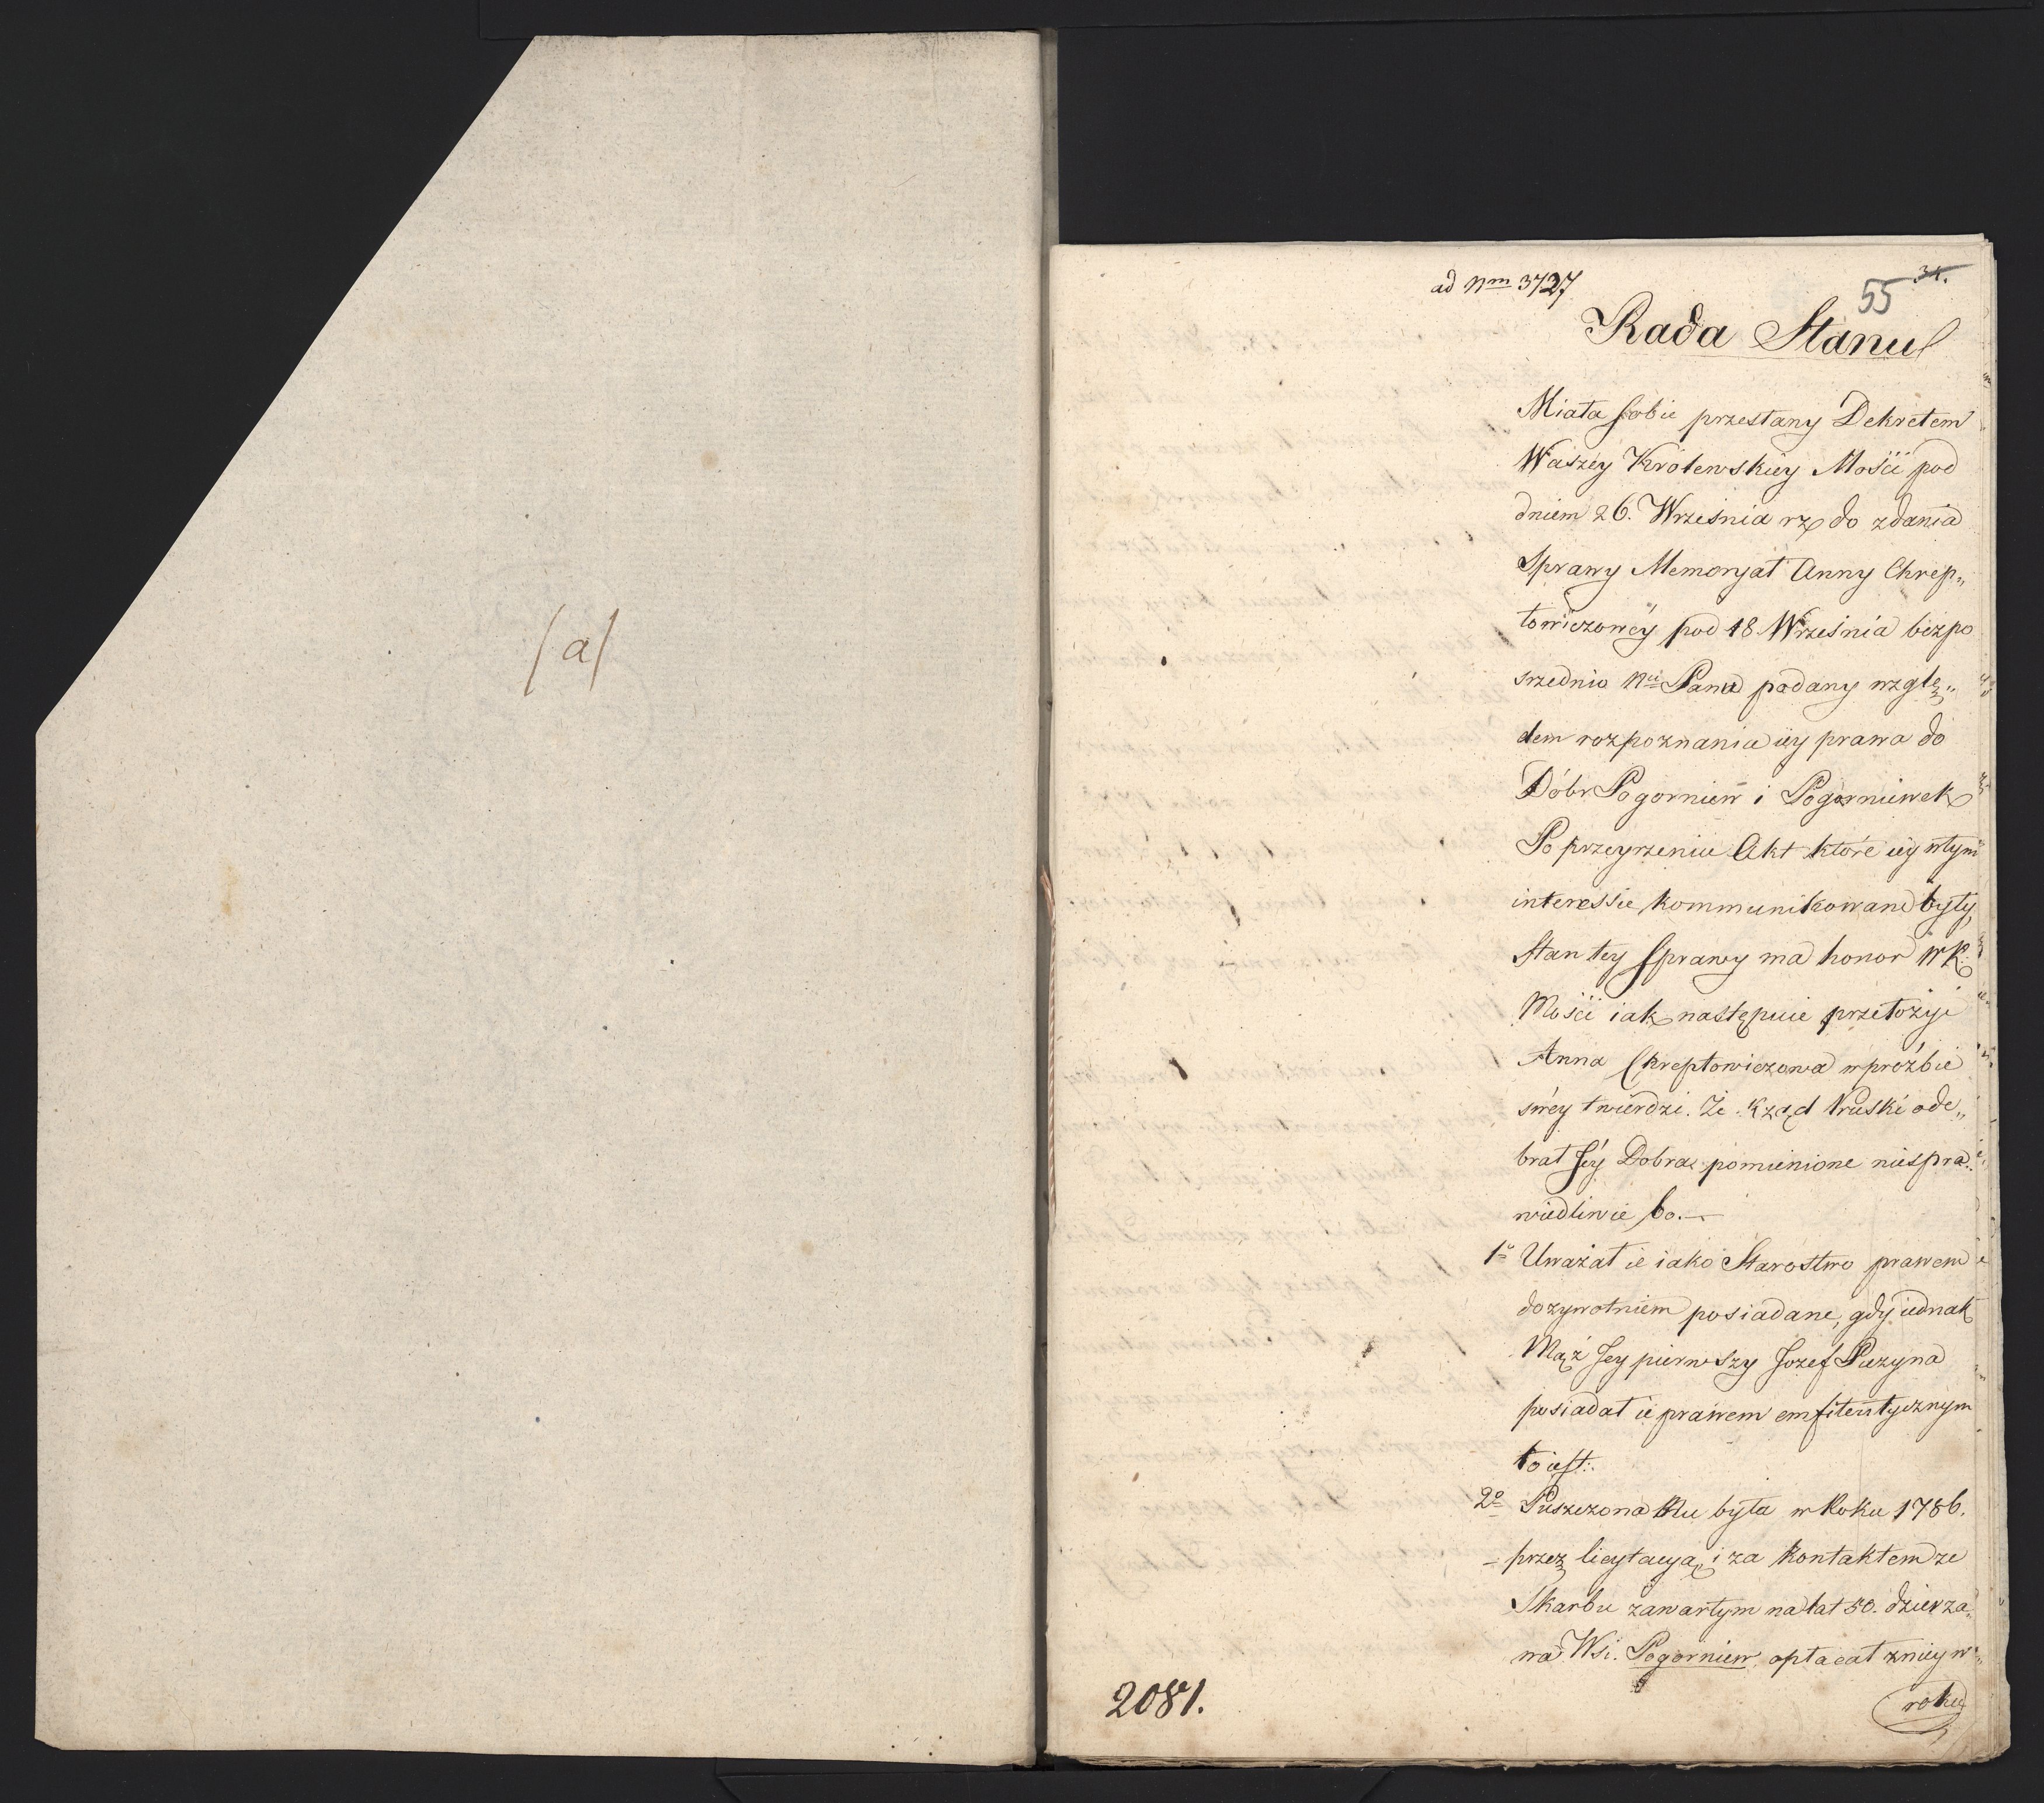 /a/
ad Nm 3727
34.
55
Rada Stanu
Miała sobie przesłany Dekretem
Waszey Królewskiey Mości pod
dniem 26. Września rz do zdania
Sprawy Memoryał Anny Chrep„
towiczowéy pod 18 Września bezpo
srzednio Nu Panu podany wzglę„
dem rozpoznania iey prawa do
Dóbr Pogorniew i Pogorniewek
Po przeyrzeniu Akt które iey wtym
interessie kommunikowane były,
Stan tey Sprawy ma honor WK:
Mości iak następuie przełożyć
Anna Chreptowiczowa w prożbie
swéy twierdzi. Że Rząd Pruski ode„
brał Jéy Dobra pomienione niespra„
wiedliwie bo.—
1o Uważał ie iako Starostwo prawem
dożywotniem posiadane, gdy iednak
Mąż Jey pierwszy Jozef Puzyna
posiadał ie prawem emfiteutycznym
to iest:
2o Puszczona Mu była w Roku 1786.
przez licytacyą i za Kontaktem ze
Skarbu zawartym na lat 50. dzierża„
wa Wsi. Pogorniew, opłacał zniey w„
roku
2081.